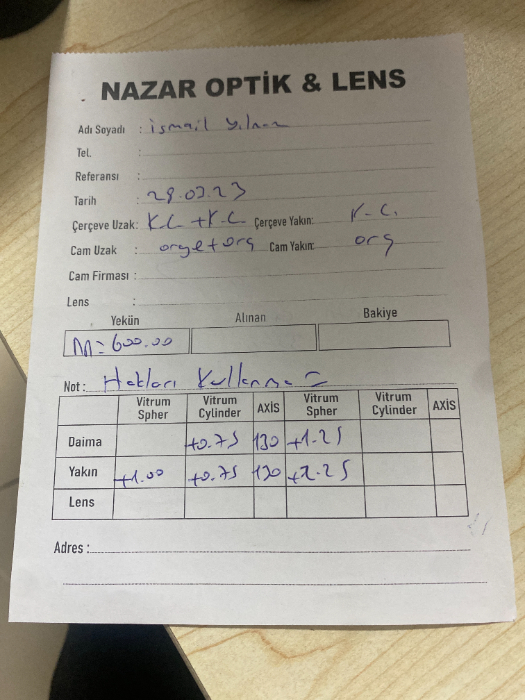 NAZAR OPTİK & LENS
Adı Soyadı : ismail yılmaz
Tel. :
Referansı :
Tarih : 28.03.23
Çerçeve Uzak: K.C +K-C Çerçeve Yakın: K-C.
Cam Uzak : orge+org Cam Yakın: org
Cam Firması :
Lens :
Yekün Alınan Bakiye
M=600.00
Not : Hakları
Vitrum Spher Vitrum Cylinder AXİS Vitrum Spher Vitrum Cylinder AXİS
Daima +0.75 130 +1.25
Yakın +1.00 +0.75 130 +2.25
Lens
Adres :